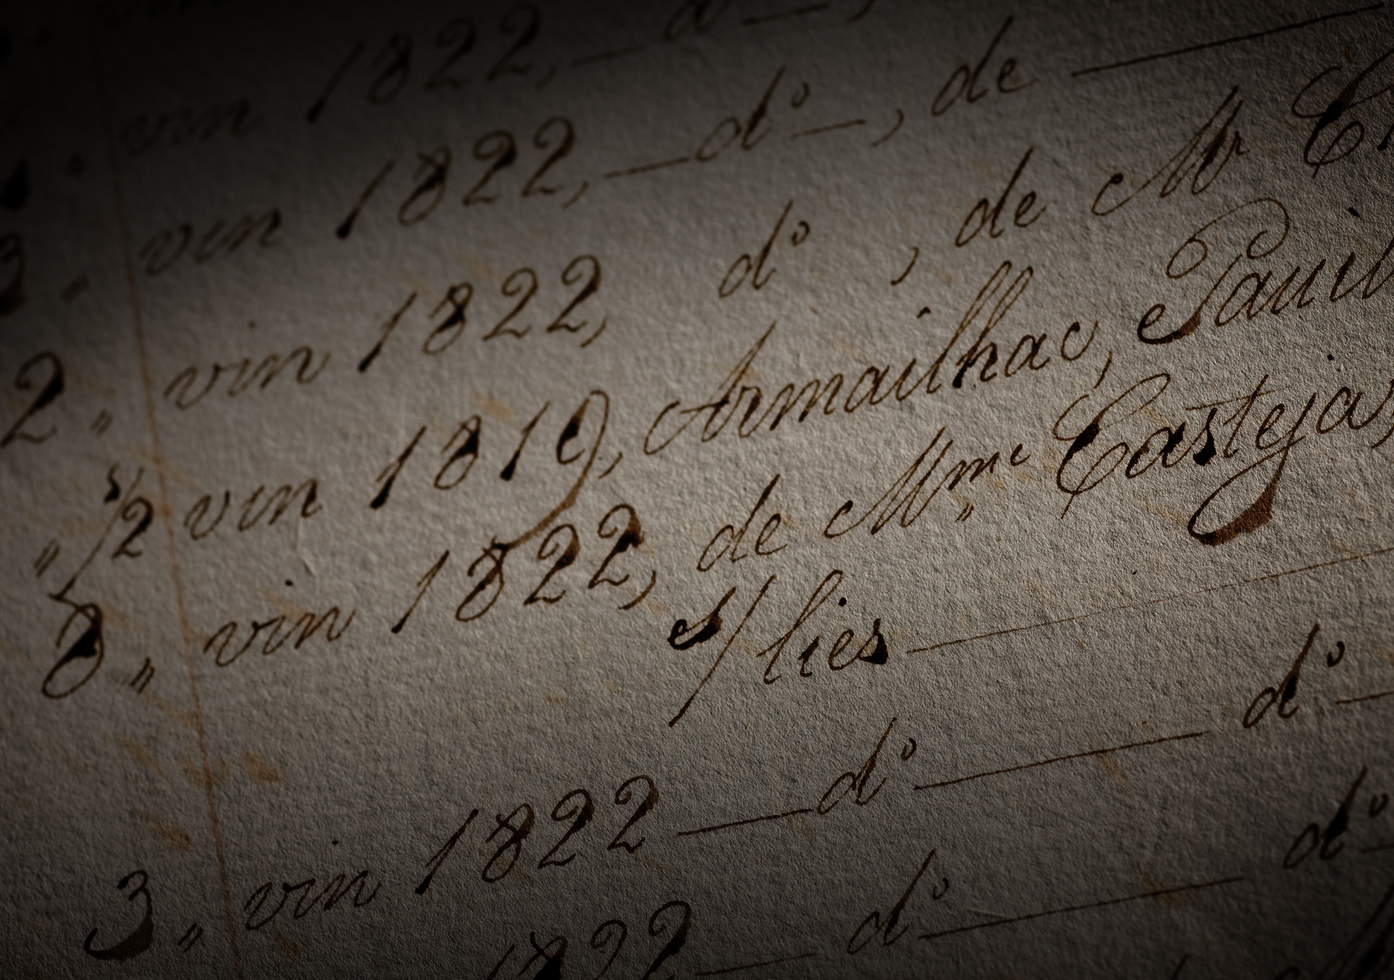 vin 1822, — d° —,
3 „ vin 1822, — d° —, de —
2 „ vin 1822, d° , de Mr
„ 1/2 vin 1819, Armailhac, Pauil
8 „ vin 1822, de Mme Casteja,
s/ lies —
3 „ vin 1822 — d° — d° —
1822 — d° — d° —